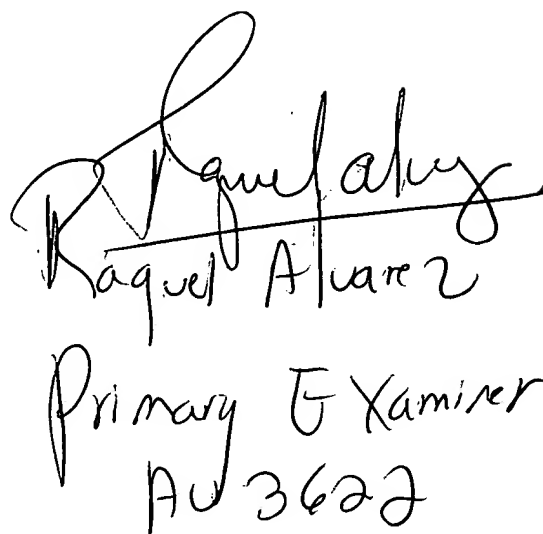 Raquel Alvarez
Raquel Alvarez
Primary Examiner
AU 3622